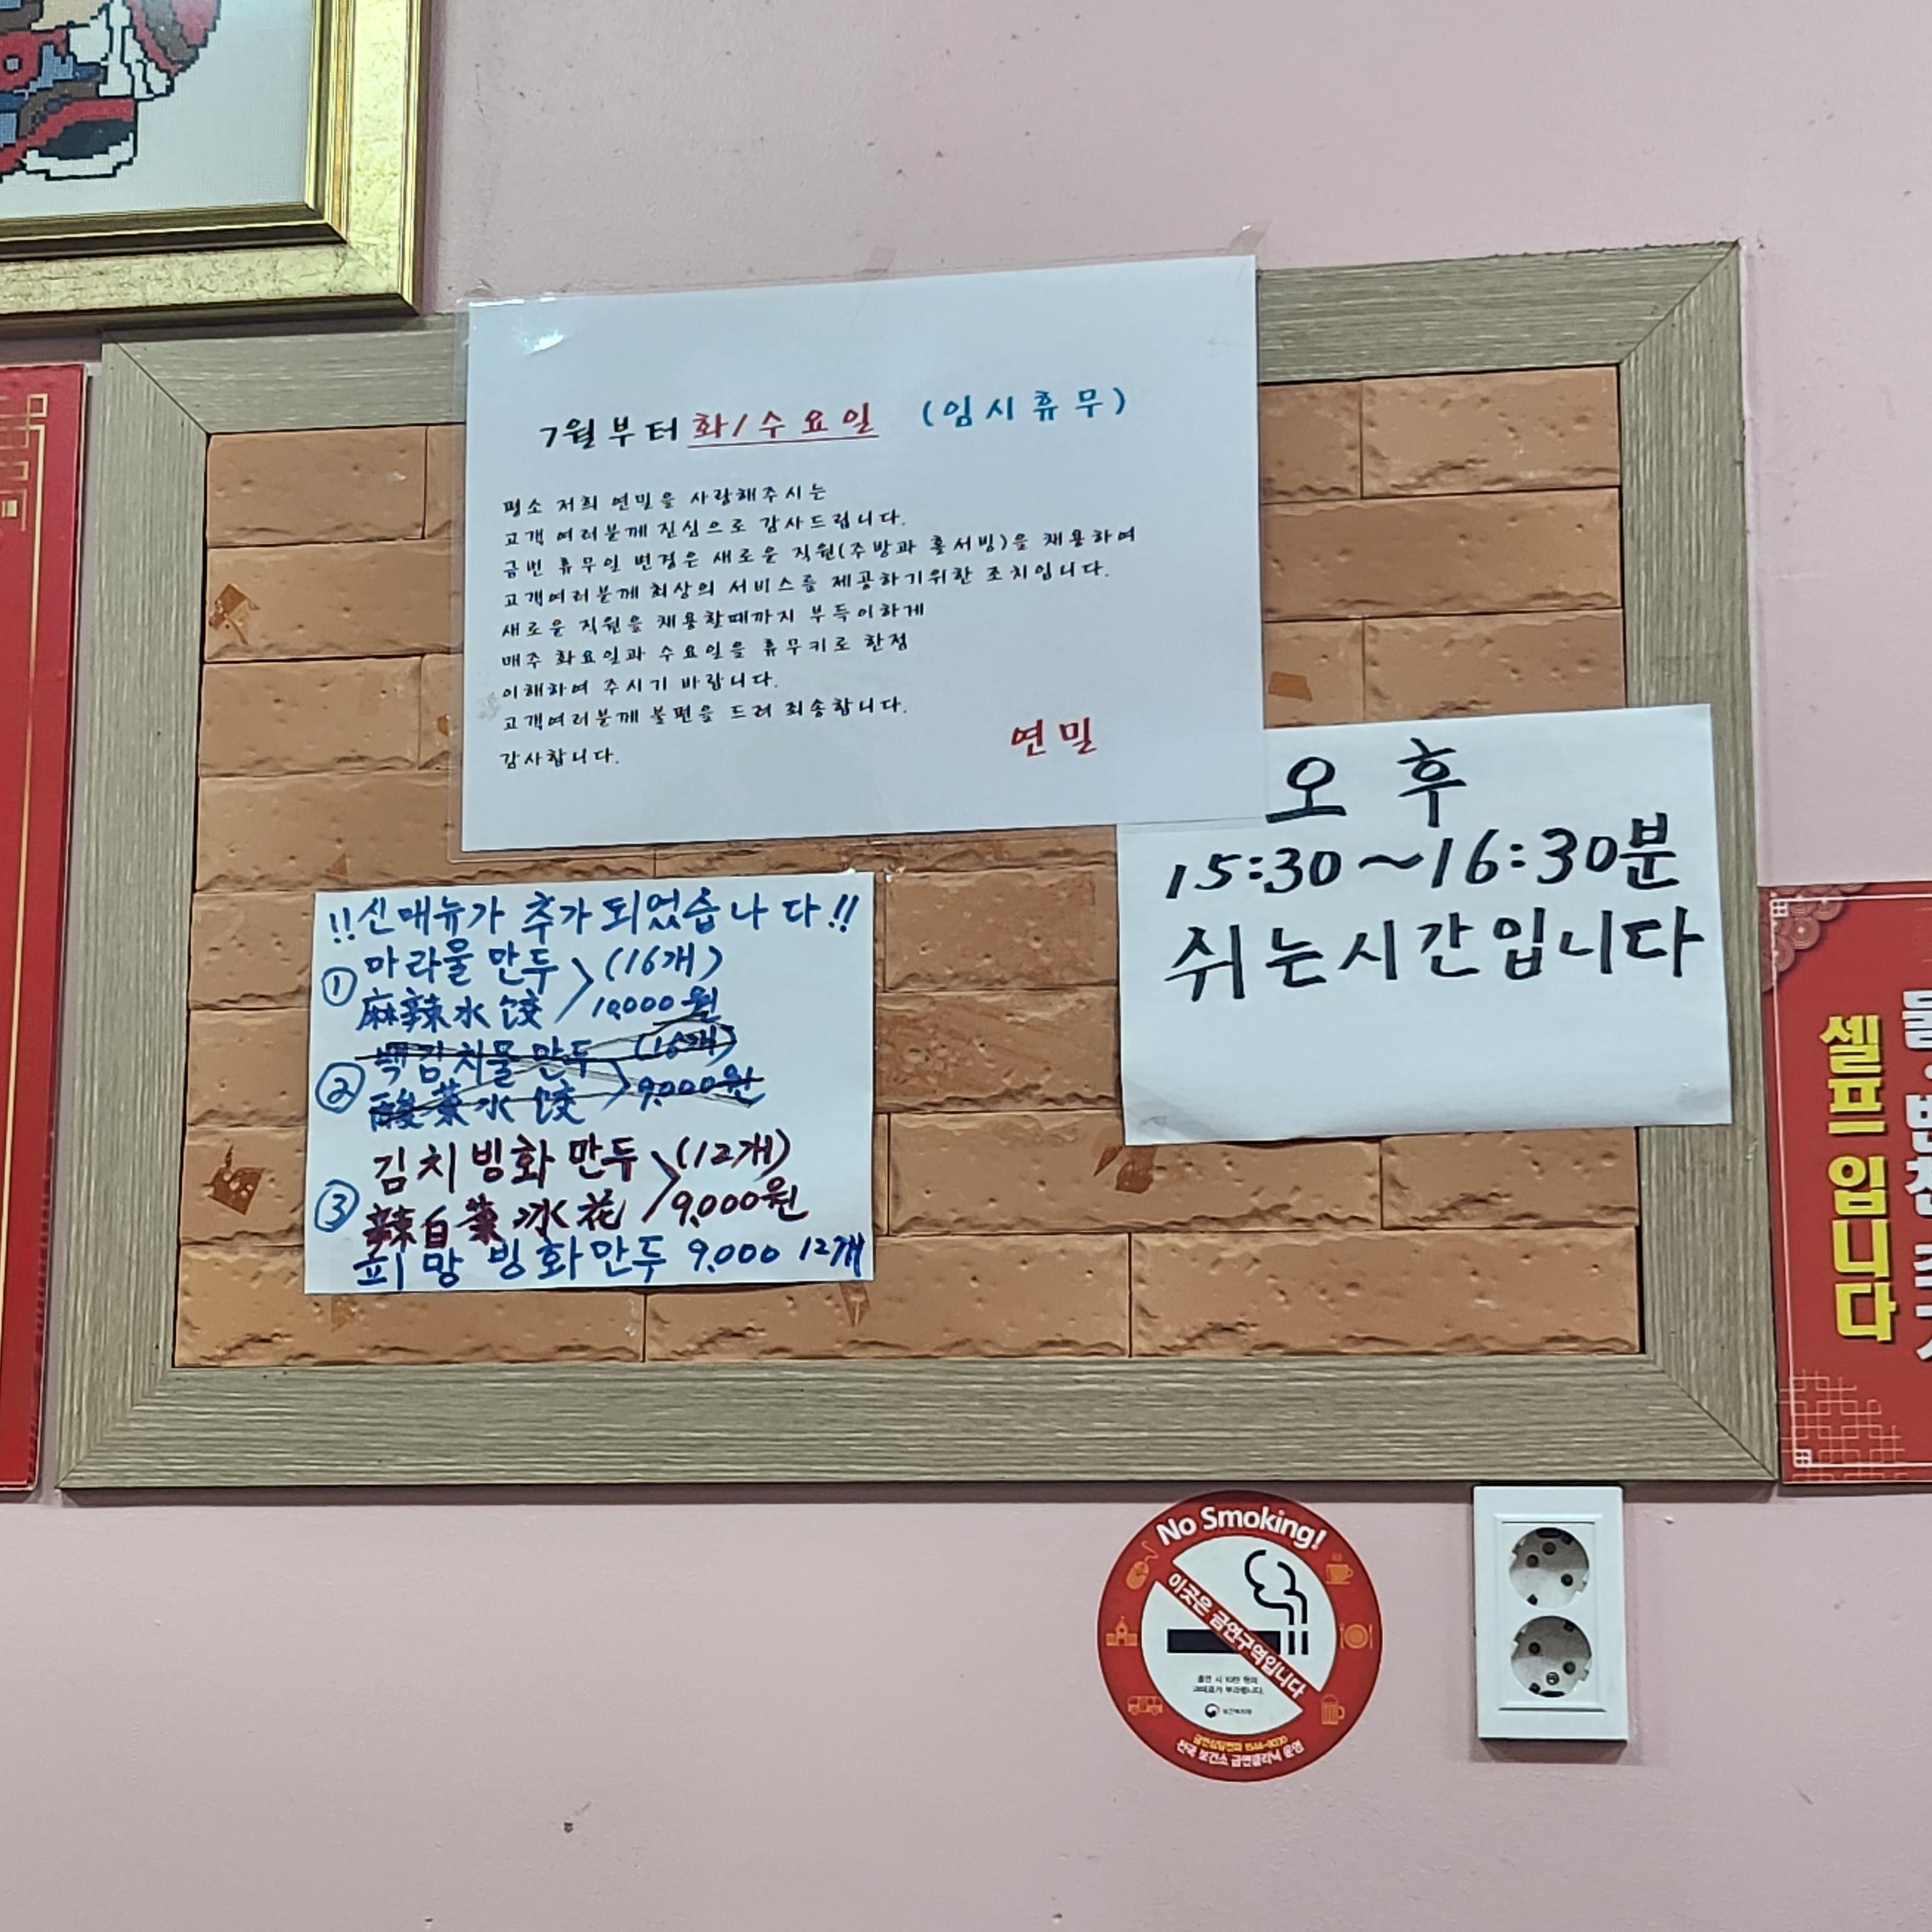 7월부터 화/수요일 (임시휴무)
평소 저희 연밀을 사랑해주시는
고객 여러분께 진심으로 감사드립니다.
금번 휴무일 변경은 새로운 직원(주방과 홀서빙)을 채용하여
고객여러분께 최상의 서비스를 제공하기위한 조치입니다.
새로운 직원을 채용할때까지 부득이하게
매주 화요일과 수요일을 휴무키로 한점
이해하여 주시기 바랍니다.
고객여러분께 불편을 드려 죄송합니다.
감사합니다.
연밀
오후
15:30~16:30분
쉬는시간입니다
!!신매뉴가 추가되었습니다!!
① 마라물만두 (16개)
麻辣水饺 10,000원
② 백김치물만두 (16개)
酸菜水饺 9,000원
김치빙화만두 (12개)
③ 辣白菜冰花 9,000원
피망빙화만두 9,000 12개
셀프입니다
No Smoking!
이곳은 금연구역입니다
흡연 시 10만 원의
과태료가 부과됩니다.
보건복지부
금연상담전화 1544-9030
전국 보건소 금연클리닉 운영